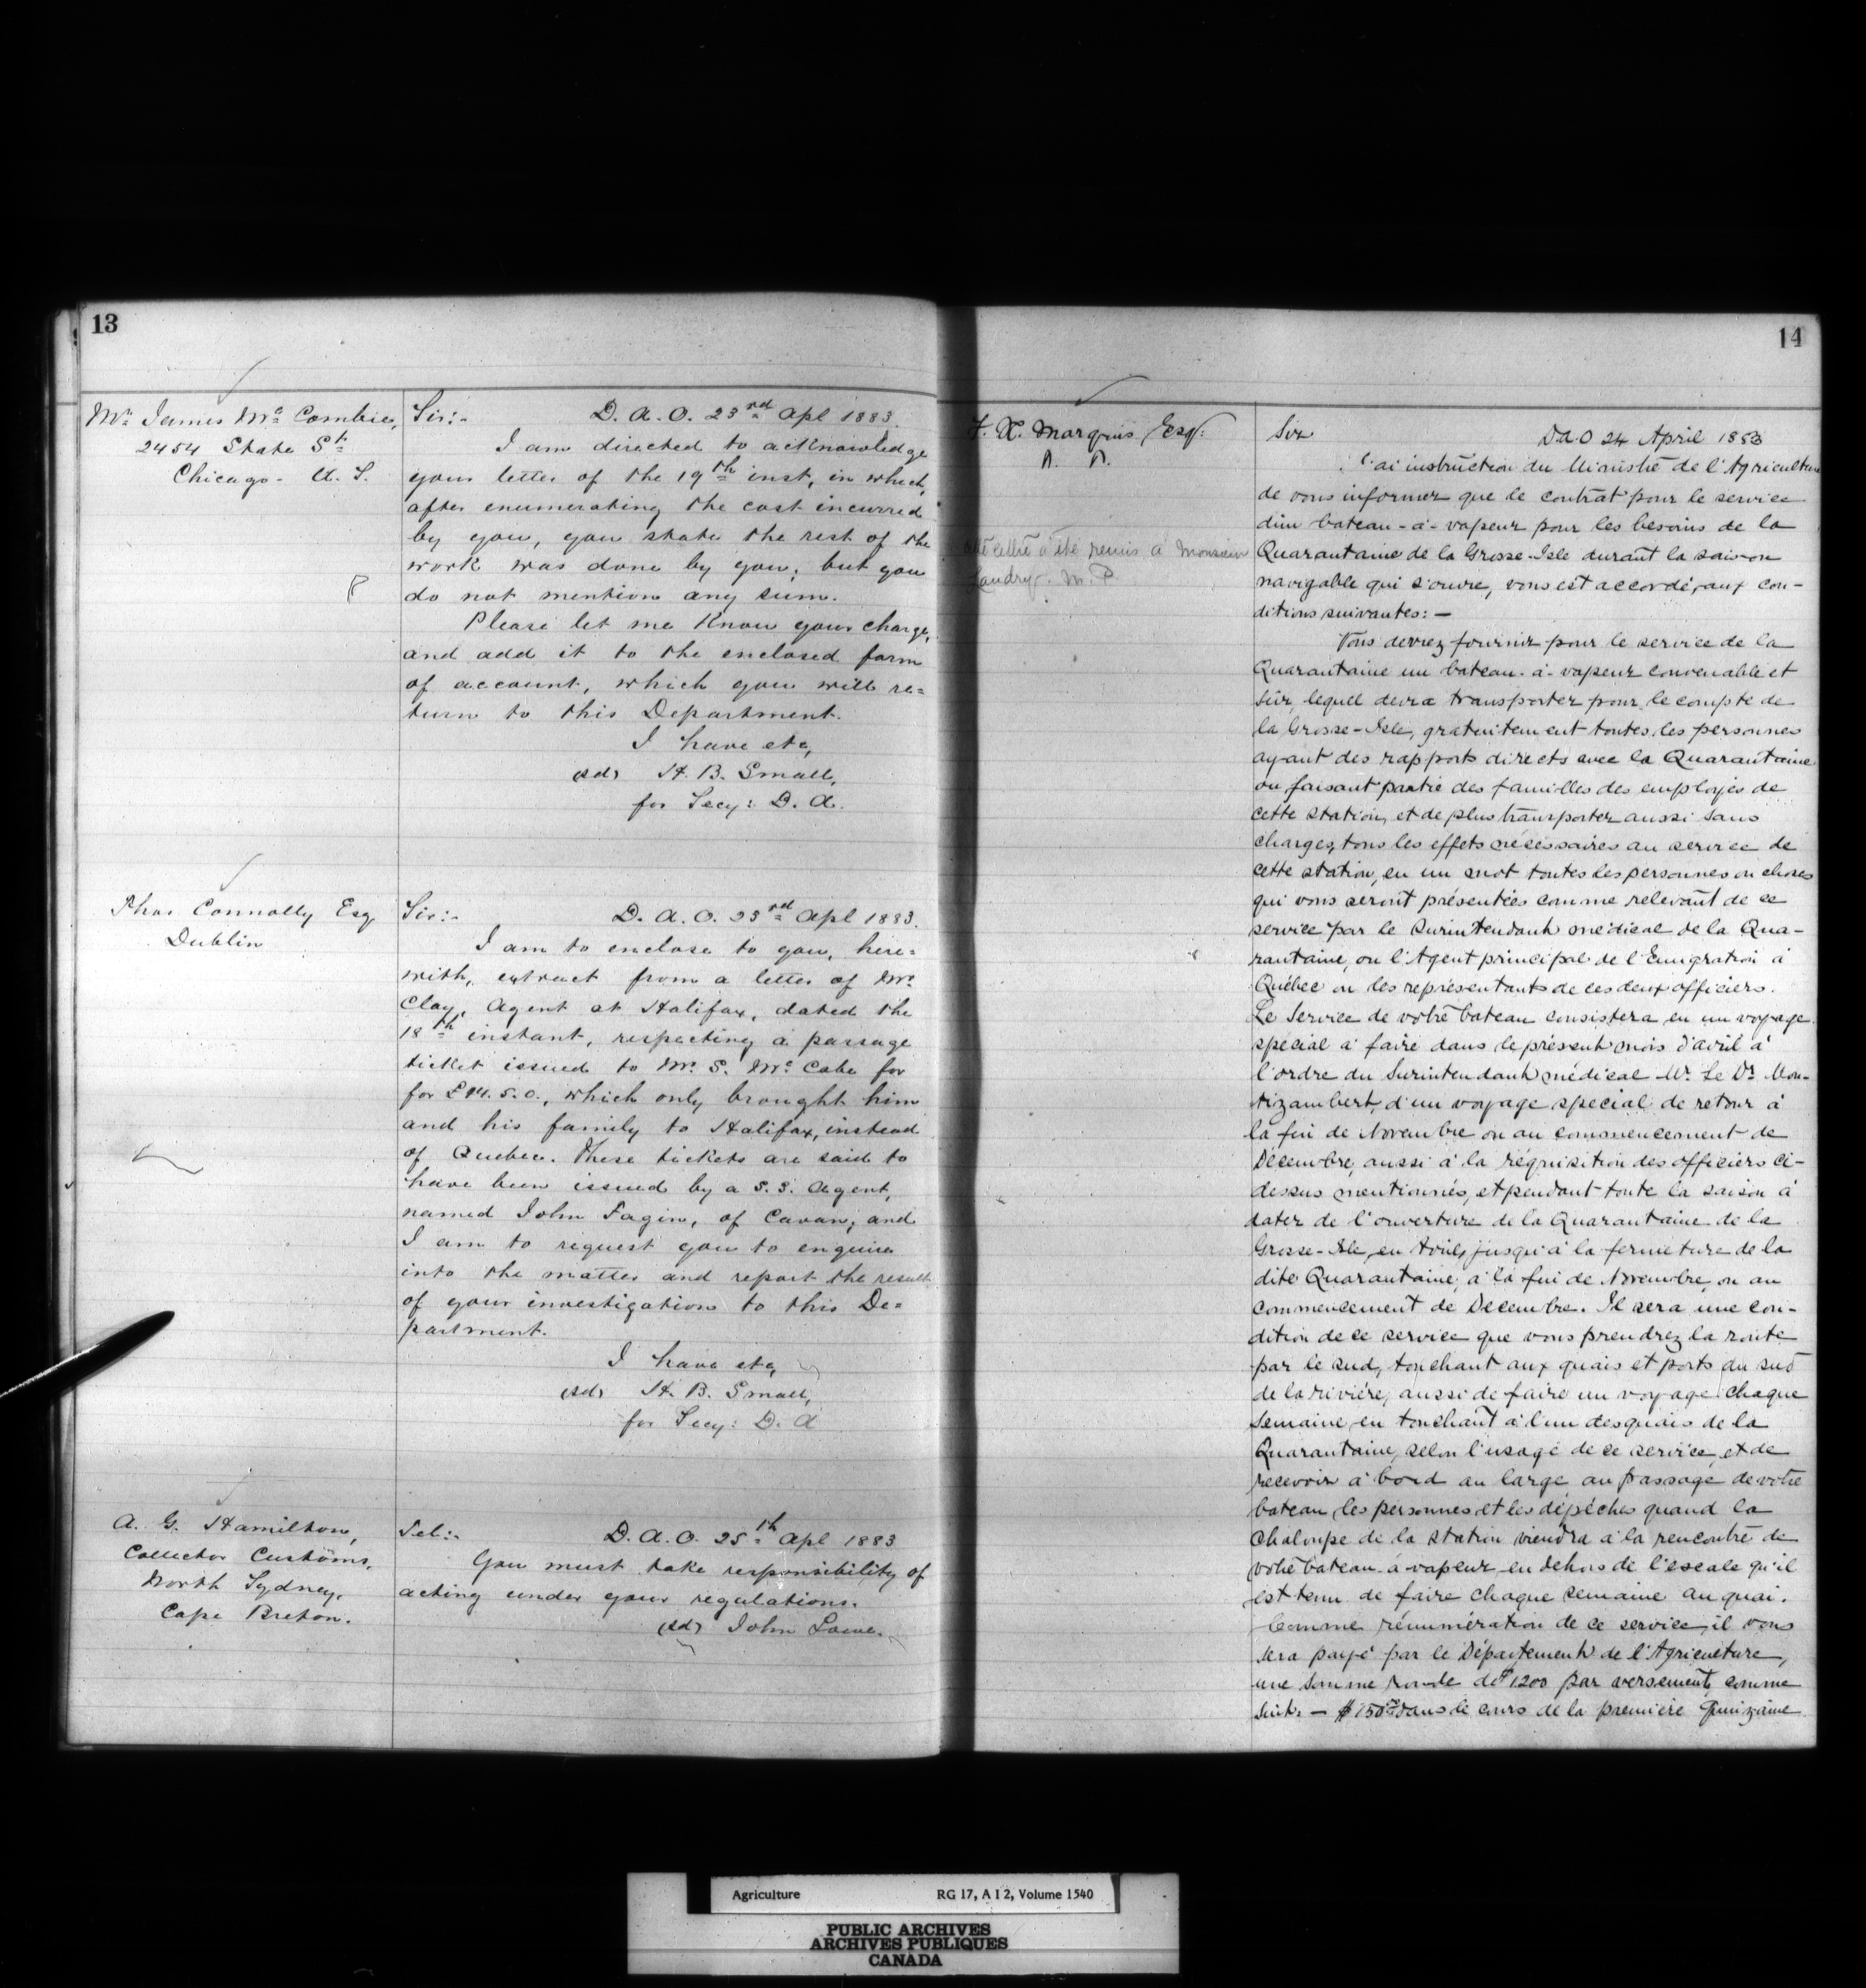 13
Mr. James Mc Combie,
2454 State St.
Chicago - U. S.
Sir:- D. A. O. 23rd Apl 1883.
I am directed to acknowledge
your letter of the 19th inst, in which,
after enumerating the cost incurred
by you, you state the rest of the
work was done by you; but you
do not mention any sum.
Please let me know your charge,
and add it to the enclosed form
of account, which you will re=
turn to this Department.
I have etc,
(sd) H. B. Small,
for Secy: D. A.
Thos Connolly Esq
Dublin
Sir:- D. A. O. 23rd Apl 1883.
I am to enclose to you, here=
with, extract from a letter of Mr.
Clay, Agent at Halifax, dated the
18th instant, respecting a passage
ticket issued to Mr. S. Mc Cabe for
for £14. 5. 0., which only brought him
and his family to Halifax, instead
of Quebec. These tickets are said to
have been issued by a S. S. Agent,
named John Fagin, of Cavan; and
I am to request you to enquire
into the matter and report the result
of your investigations to this De=
partment.
I have etc,
(sd) H. B. Small,
for Secy: D. A
A. G. Hamilton,
Collector Customs,
North Sydney,
Cape Breton.
Tel:- D. A. O. 25th Apl 1883
You must take responsibility of
acting under your regulations.
(sd) John Lowe.
14
F. X. Marquis, Esq:
cette lettre a été remis à Monsieur
Landry. M. P.
Sir D A O 24 April 1883
J'ai instruction du Ministre de l'Agriculture
de vous informer que le contrat pour le service
d'un bateau-à-vapeur pour les besoins de la
Quarantaine de la Grosse-Isle durant la saison
navigable qui s'ouvre, vous est accordé, aux con-
ditions suivantes: -
Vous devrez fournir pour le service de la
Quarantaine un bateau-à-vapeur convenable et
sûr, lequel devra transporter pour le compte de
la Grosse-Isle, gratuitement toutes les personnes
ayant des rapports directs avec la Quarantaine
ou faisant partie des familles des employés de
cette station, et de plus transporter aussi sans
charges, tous les effets nécessaires au service de
cette station, en un mot toutes les personnes ou choses
qui vous seront présentées comme relevant de ce
service par le Surintendant médical de la Qua-
rantaine, ou l'Agent principal de l'Emigration à
Québec ou les représentants de ces deux officiers.
Le Service de votre bateau consistera en un voyage
special à faire dans le présent mois d'avril à
l'ordre du Surintendant médical Mr. Le Dr. Mon-
tizambert, d'un voyage special de retour à
la fin de Novembre ou au commencement de
Décembre, aussi à la réquisition des officiers ci-
dessus mentionnés, et pendant toute la saison à
dater de l'ouverture de la Quarantaine de la
Grosse-Isle, en Avril, jusqu'à la fermeture de la
dite Quarantaine, à la fin de Novembre, ou au
commencement de Decembre. Il sera une con-
dition de ce service que vous prendrez la route
par le sud, touchant aux quais et ports du sud
de la rivière, aussi de faire un voyage chaque
semaine en touchant à l'un des quais de la
Quarantaine, selon l'usage de ce service, et de
recevoir à bord au large au passage de votre
bateau, les personnes et les dépêches quand la
Chaloupe de la station viendra à la rencontre de
votre bateau-à-vapeur en dehors de l'escale qu'il
est tenu de faire chaque semaine au quai.
Comme rémunération de ce service, il vous
sera payé par le Département de l'Agriculture,
une somme ronde de $1200 par versement, comme
suit: - $150 dans le cours de la premiere Quinzaine
Agriculture RG 17, A I 2, Volume 1540
PUBLIC ARCHIVES
ARCHIVES PUBLIQUES
CANADA